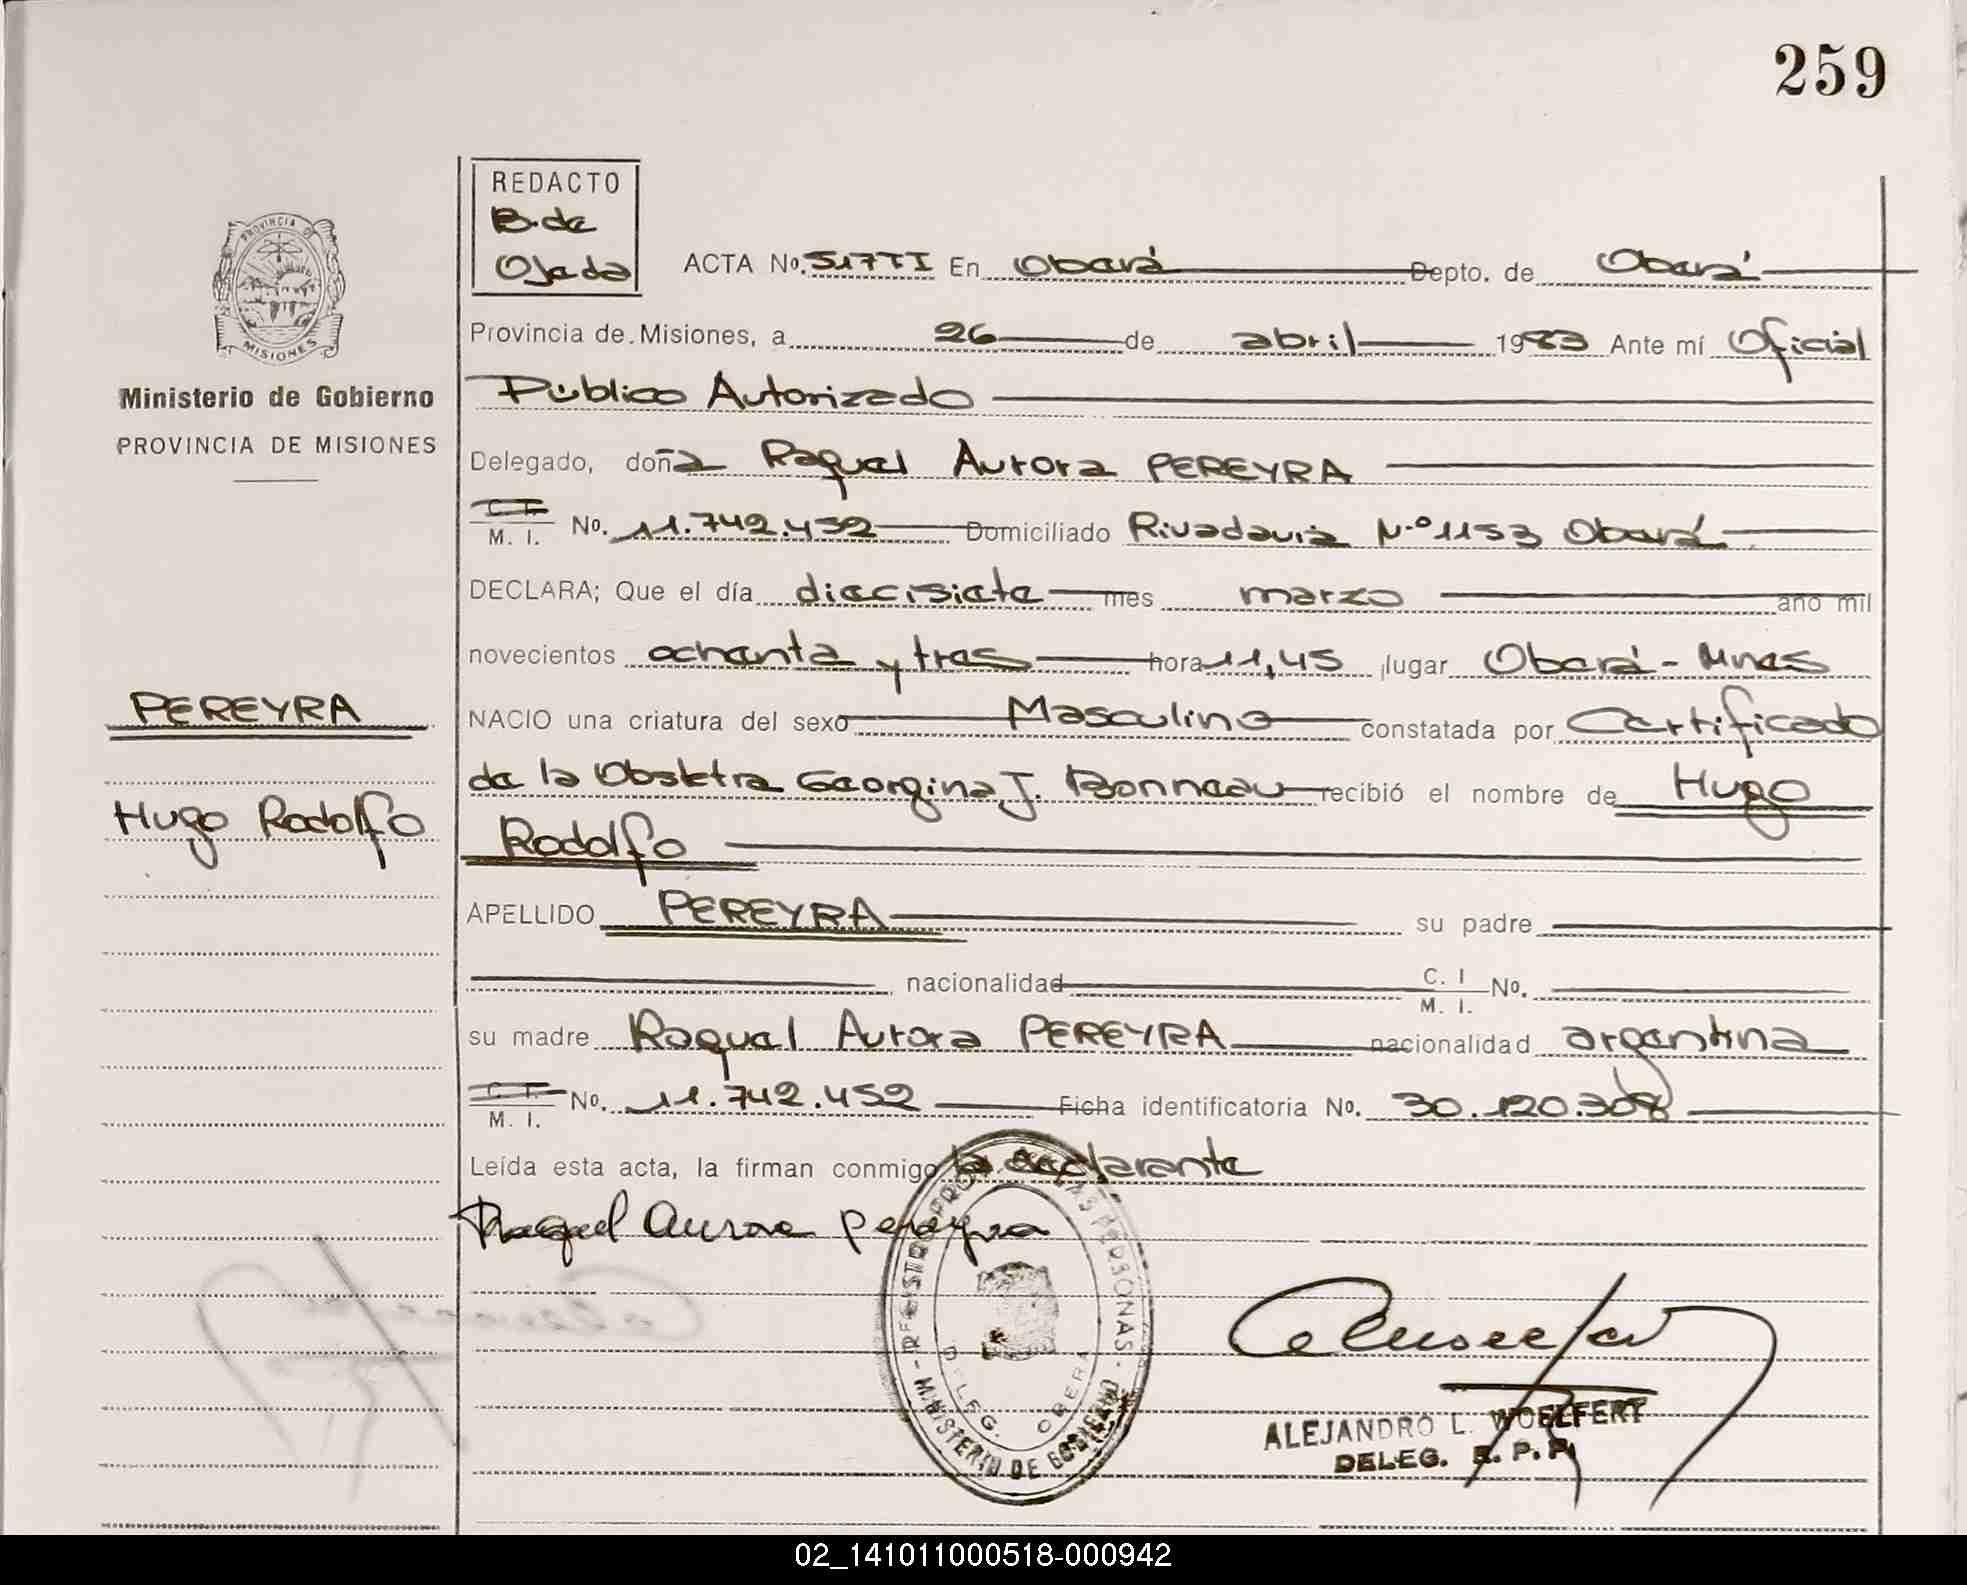 259
REDACTO
B. de
Ojeda
ACTA No. 517 TI En Oberá Depto. de Oberá
PROVINCIA DE
MISIONES
Provincia de Misiones, a 26 de abril 1983 Ante mí Oficial
Ministerio de Gobierno
Público Autorizado
PROVINCIA DE MISIONES
Delegado, doña Raquel Aurora PEREYRA
C. I.
M. I. No. 11.742.452 Domiciliado Rivadavia N.º 1153 Oberá
DECLARA; Que el día diecisiete mes marzo año mil
novecientos ochenta y tres hora 11,45 lugar Oberá - Mnes
PEREYRA
NACIO una criatura del sexo Masculino constatada por Certificado
de la Obstetra Georgina J. Bonneau recibió el nombre de Hugo
Hugo Rodolfo
Rodolfo
APELLIDO PEREYRA su padre
nacionalidad C. I
M. I. No.
su madre Raquel Aurora PEREYRA nacionalidad argentina
C. I.
M. I. No. 11.742.452 Ficha identificatoria No. 30.120.308
Leída esta acta, la firman conmigo la declarante
Raquel Aurora Pereyra
REGISTRO PROV. DE LAS PERSONAS
DELEG. OBERA
MINISTERIO DE GOBIERNO
ALEJANDRO L. WOELFERT
DELEG. R. P. P.
02_141011000518-000942